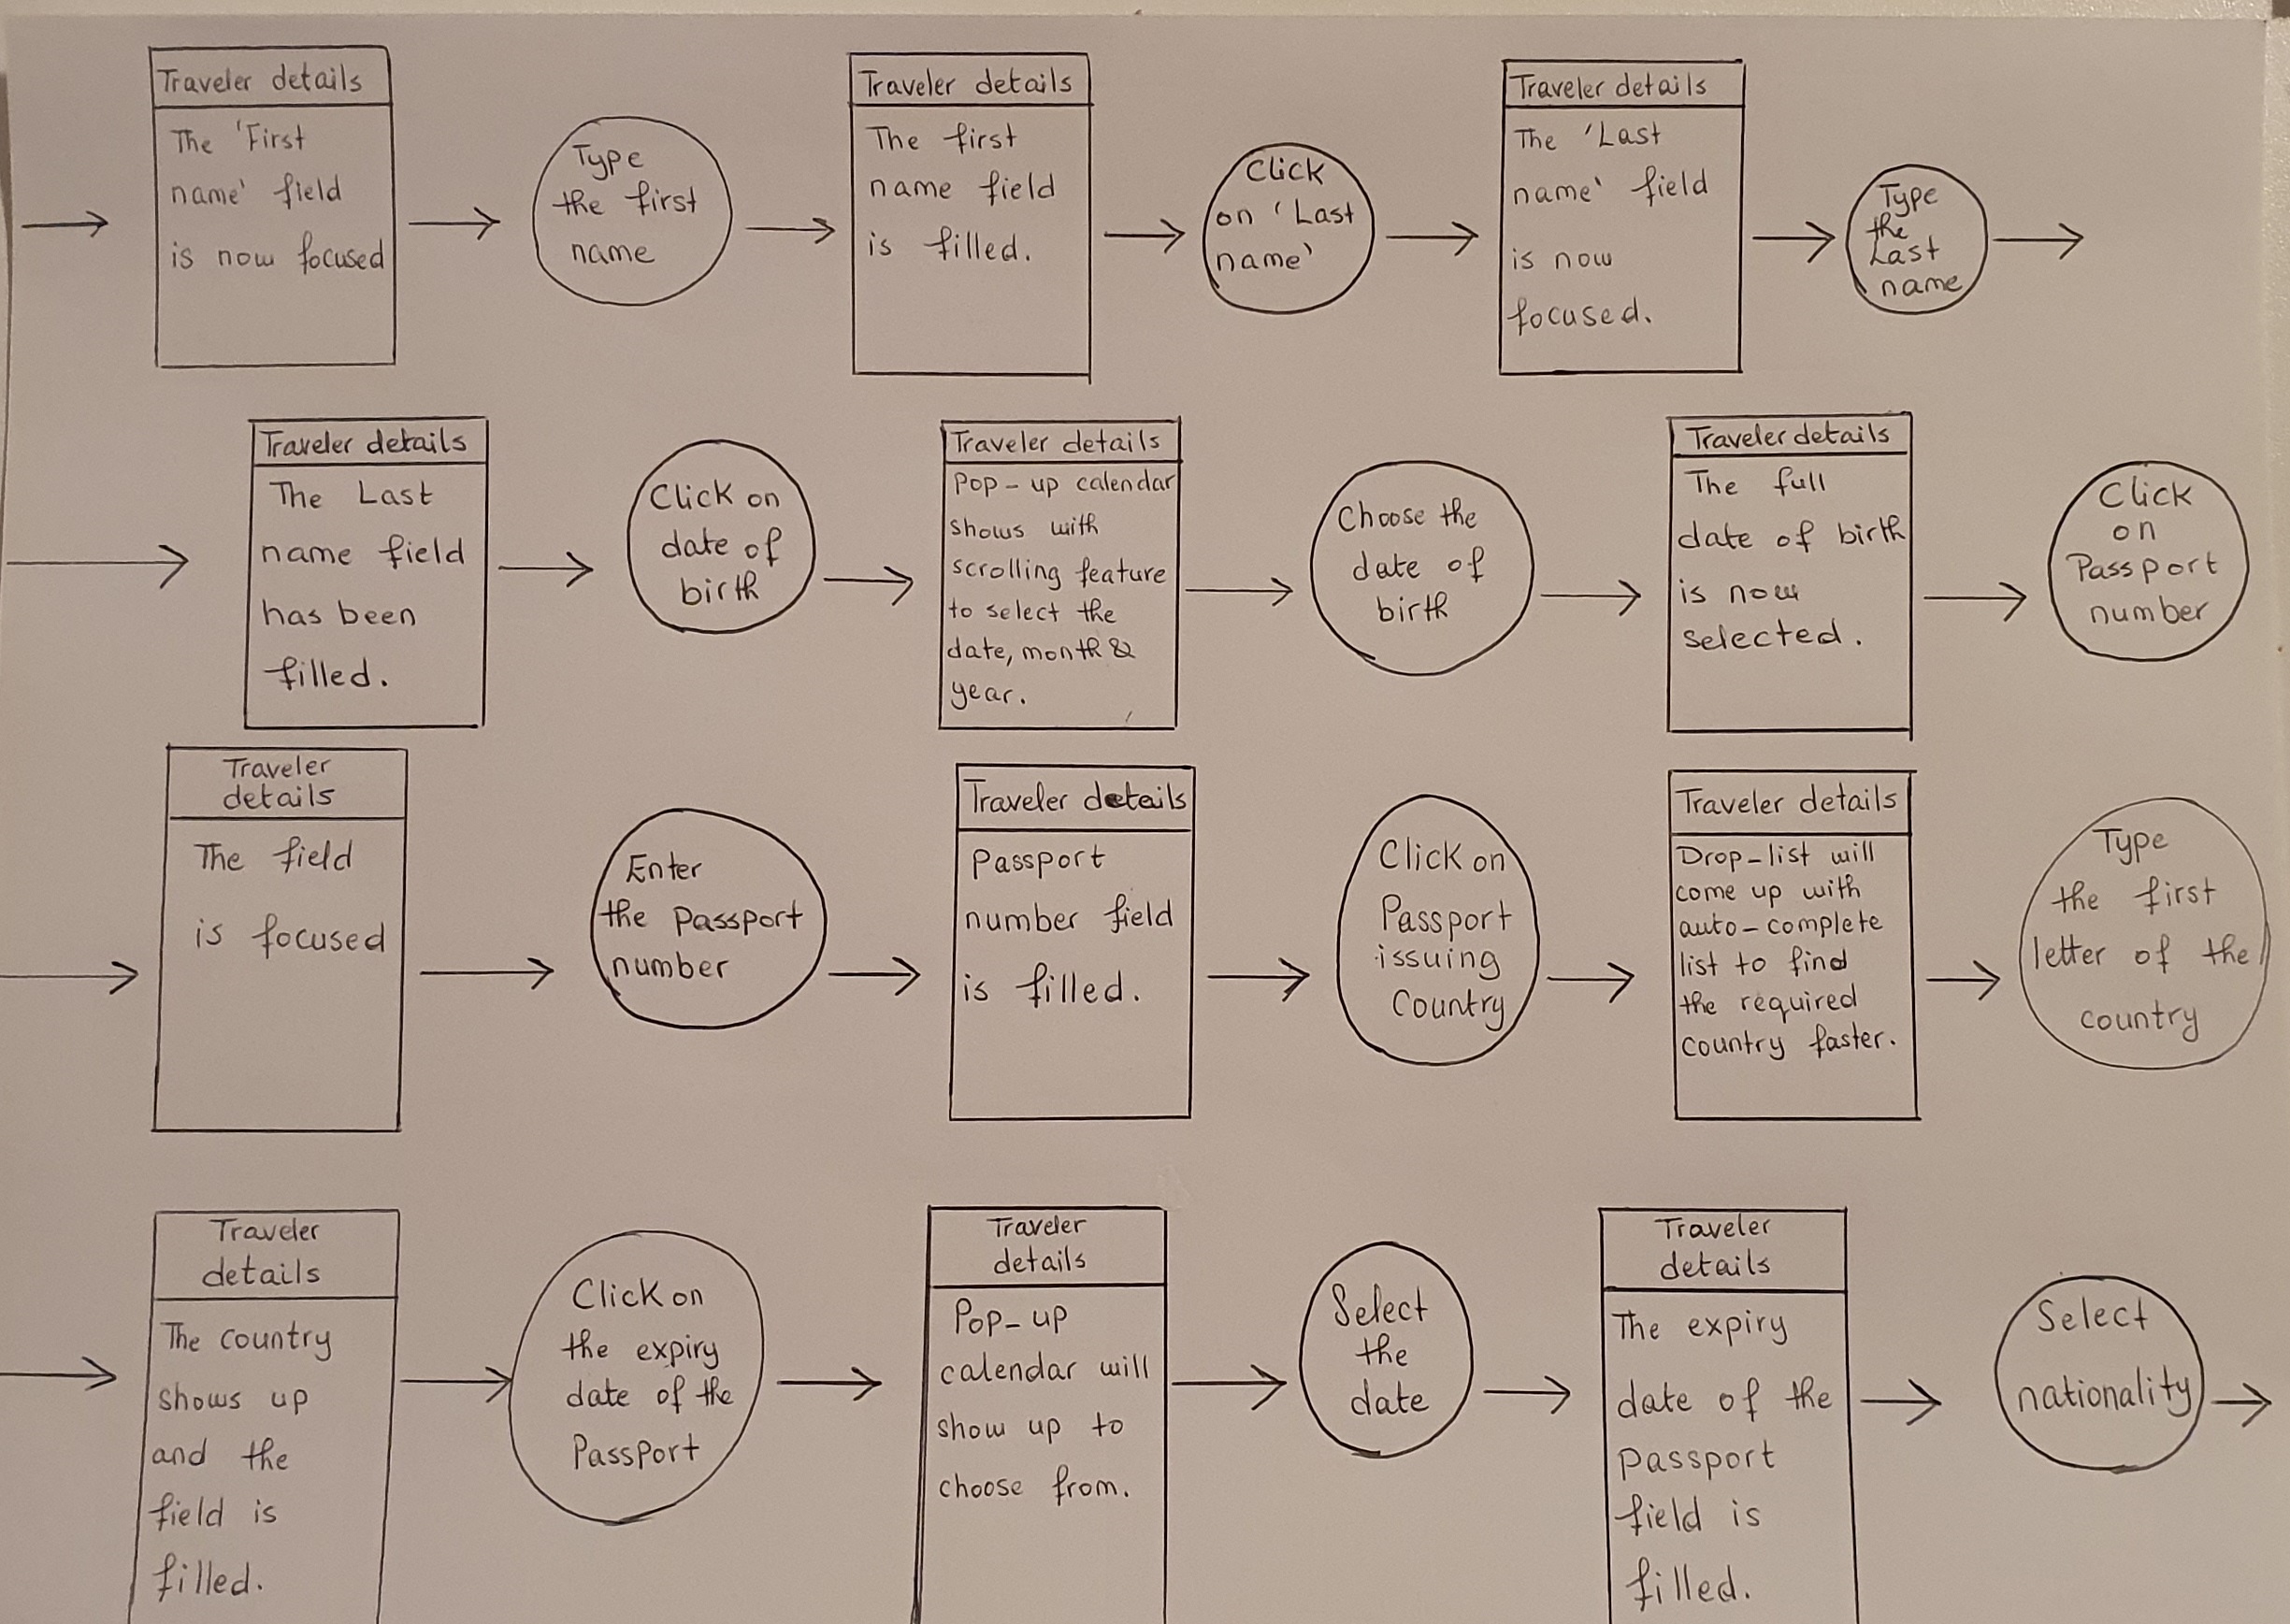 Traveler details
The 'First
name' field
is now focused
Type
the first
name
Traveler details
The first
name field
is filled.
Click
on 'Last
name'
Traveler details
The 'Last
name' field
is now
focused.
Type
the
Last
name
Traveler details
The Last
name field
has been
filled.
Click on
date of
birth
Traveler details
Pop-up calendar
shows with
scrolling feature
to select the
date, month &
year.
Choose the
date of
birth
Traveler details
The full
date of birth
is now
selected.
Click
on
Passport
number
Traveler
details
The field
is focused
Enter
the Passport
number
Traveler details
Passport
number field
is filled.
Click on
Passport
issuing
Country
Traveler details
Drop-list will
come up with
auto-complete
list to find
the required
country faster.
Type
the first
letter of the
country
Traveler
details
The country
shows up
and the
field is
filled.
Click on
the expiry
date of the
Passport
Traveler
details
Pop-up
calendar will
show up to
choose from.
Select
the
date
Traveler
details
The expiry
date of the
Passport
field is
filled.
Select
nationality